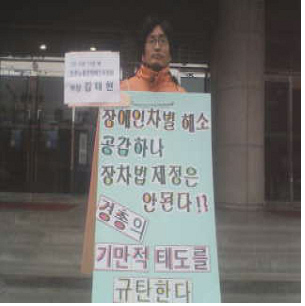 회장 김재헌
장애인차별 해소
공감하나
장차법 제정은
안된다!!
경총의
기만적 태도를
규탄한다